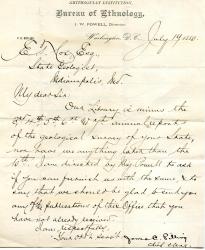 SMITHSONIAN INSTITUTION,
Bureau of Ethnology,
J. W. POWELL, Director
Washington, D.C., July 19, 188
E. T. Cox, Esq.
State Geologist,
Indianapolis, Ind.
My dear Sir:
Our library is minus the
3d, 4th, 5th, 6th & 7th Annual Reports
of the Geological Survey of your State,
nor have we anything later than the
10th. I am directed by Maj. Powell to ask
if you can furnish us with the same &
to say that we should be glad to send you
any of the publications of this Office that you
have not already received.
I am, respectfully,
Your obt. servt. James C. Pilling
Chief Clerk